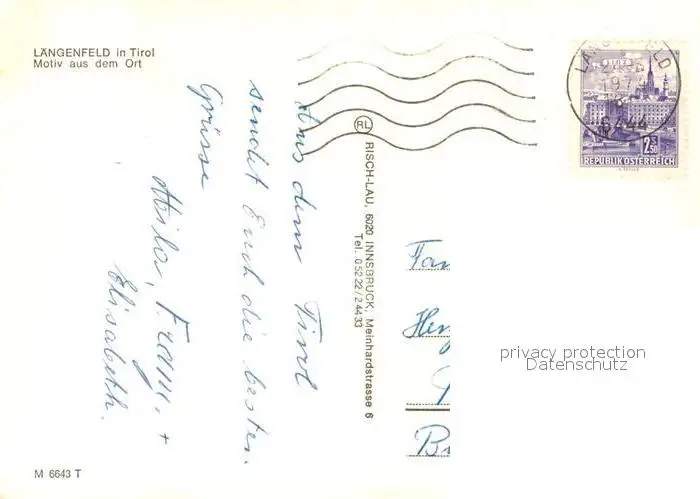 LÄNGENFELD in Tirol
Motiv aus dem Ort
Aus dem Tirol
sendet Euch die besten
Grüsse
Franz, +
Elisabeth.
RL
RISCH-LAU, 6020 INNSBRUCK, Meinhardstrasse 6
Tel. 05222/24433
LINZ
6444
2.50
REPUBLIK ÖSTERREICH
Fam
privacy protection
Datenschutz
M 6643 T